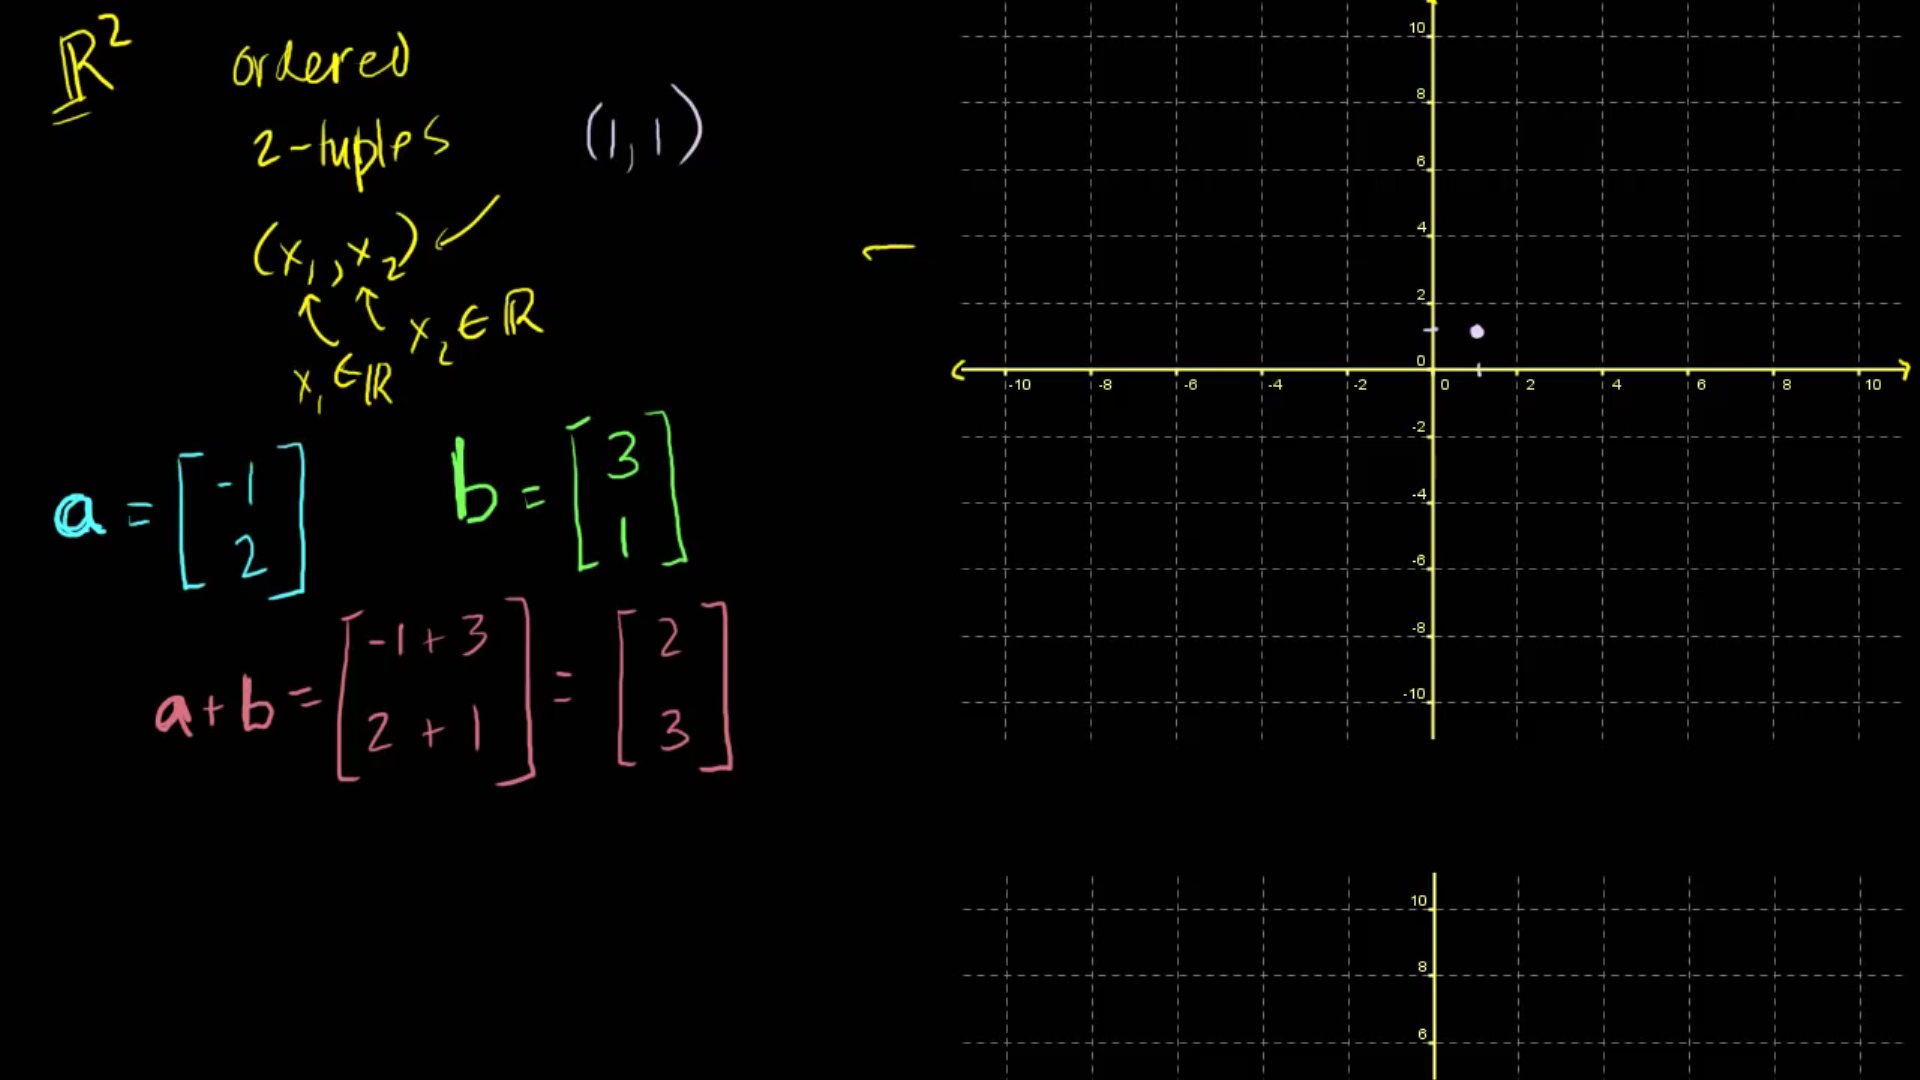 ℝ² ordered
2-tuples (1,1)
(x₁,x₂)
x₁∈ℝ x₂∈ℝ
a = [-1 2] b = [3 1]
a+b = [-1+3 2+1] = [2 3]
10
8
6
4
2
0
-10 -8 -6 -4 -2 0 2 4 6 8 10
-2
-4
-6
-8
-10
10
8
6